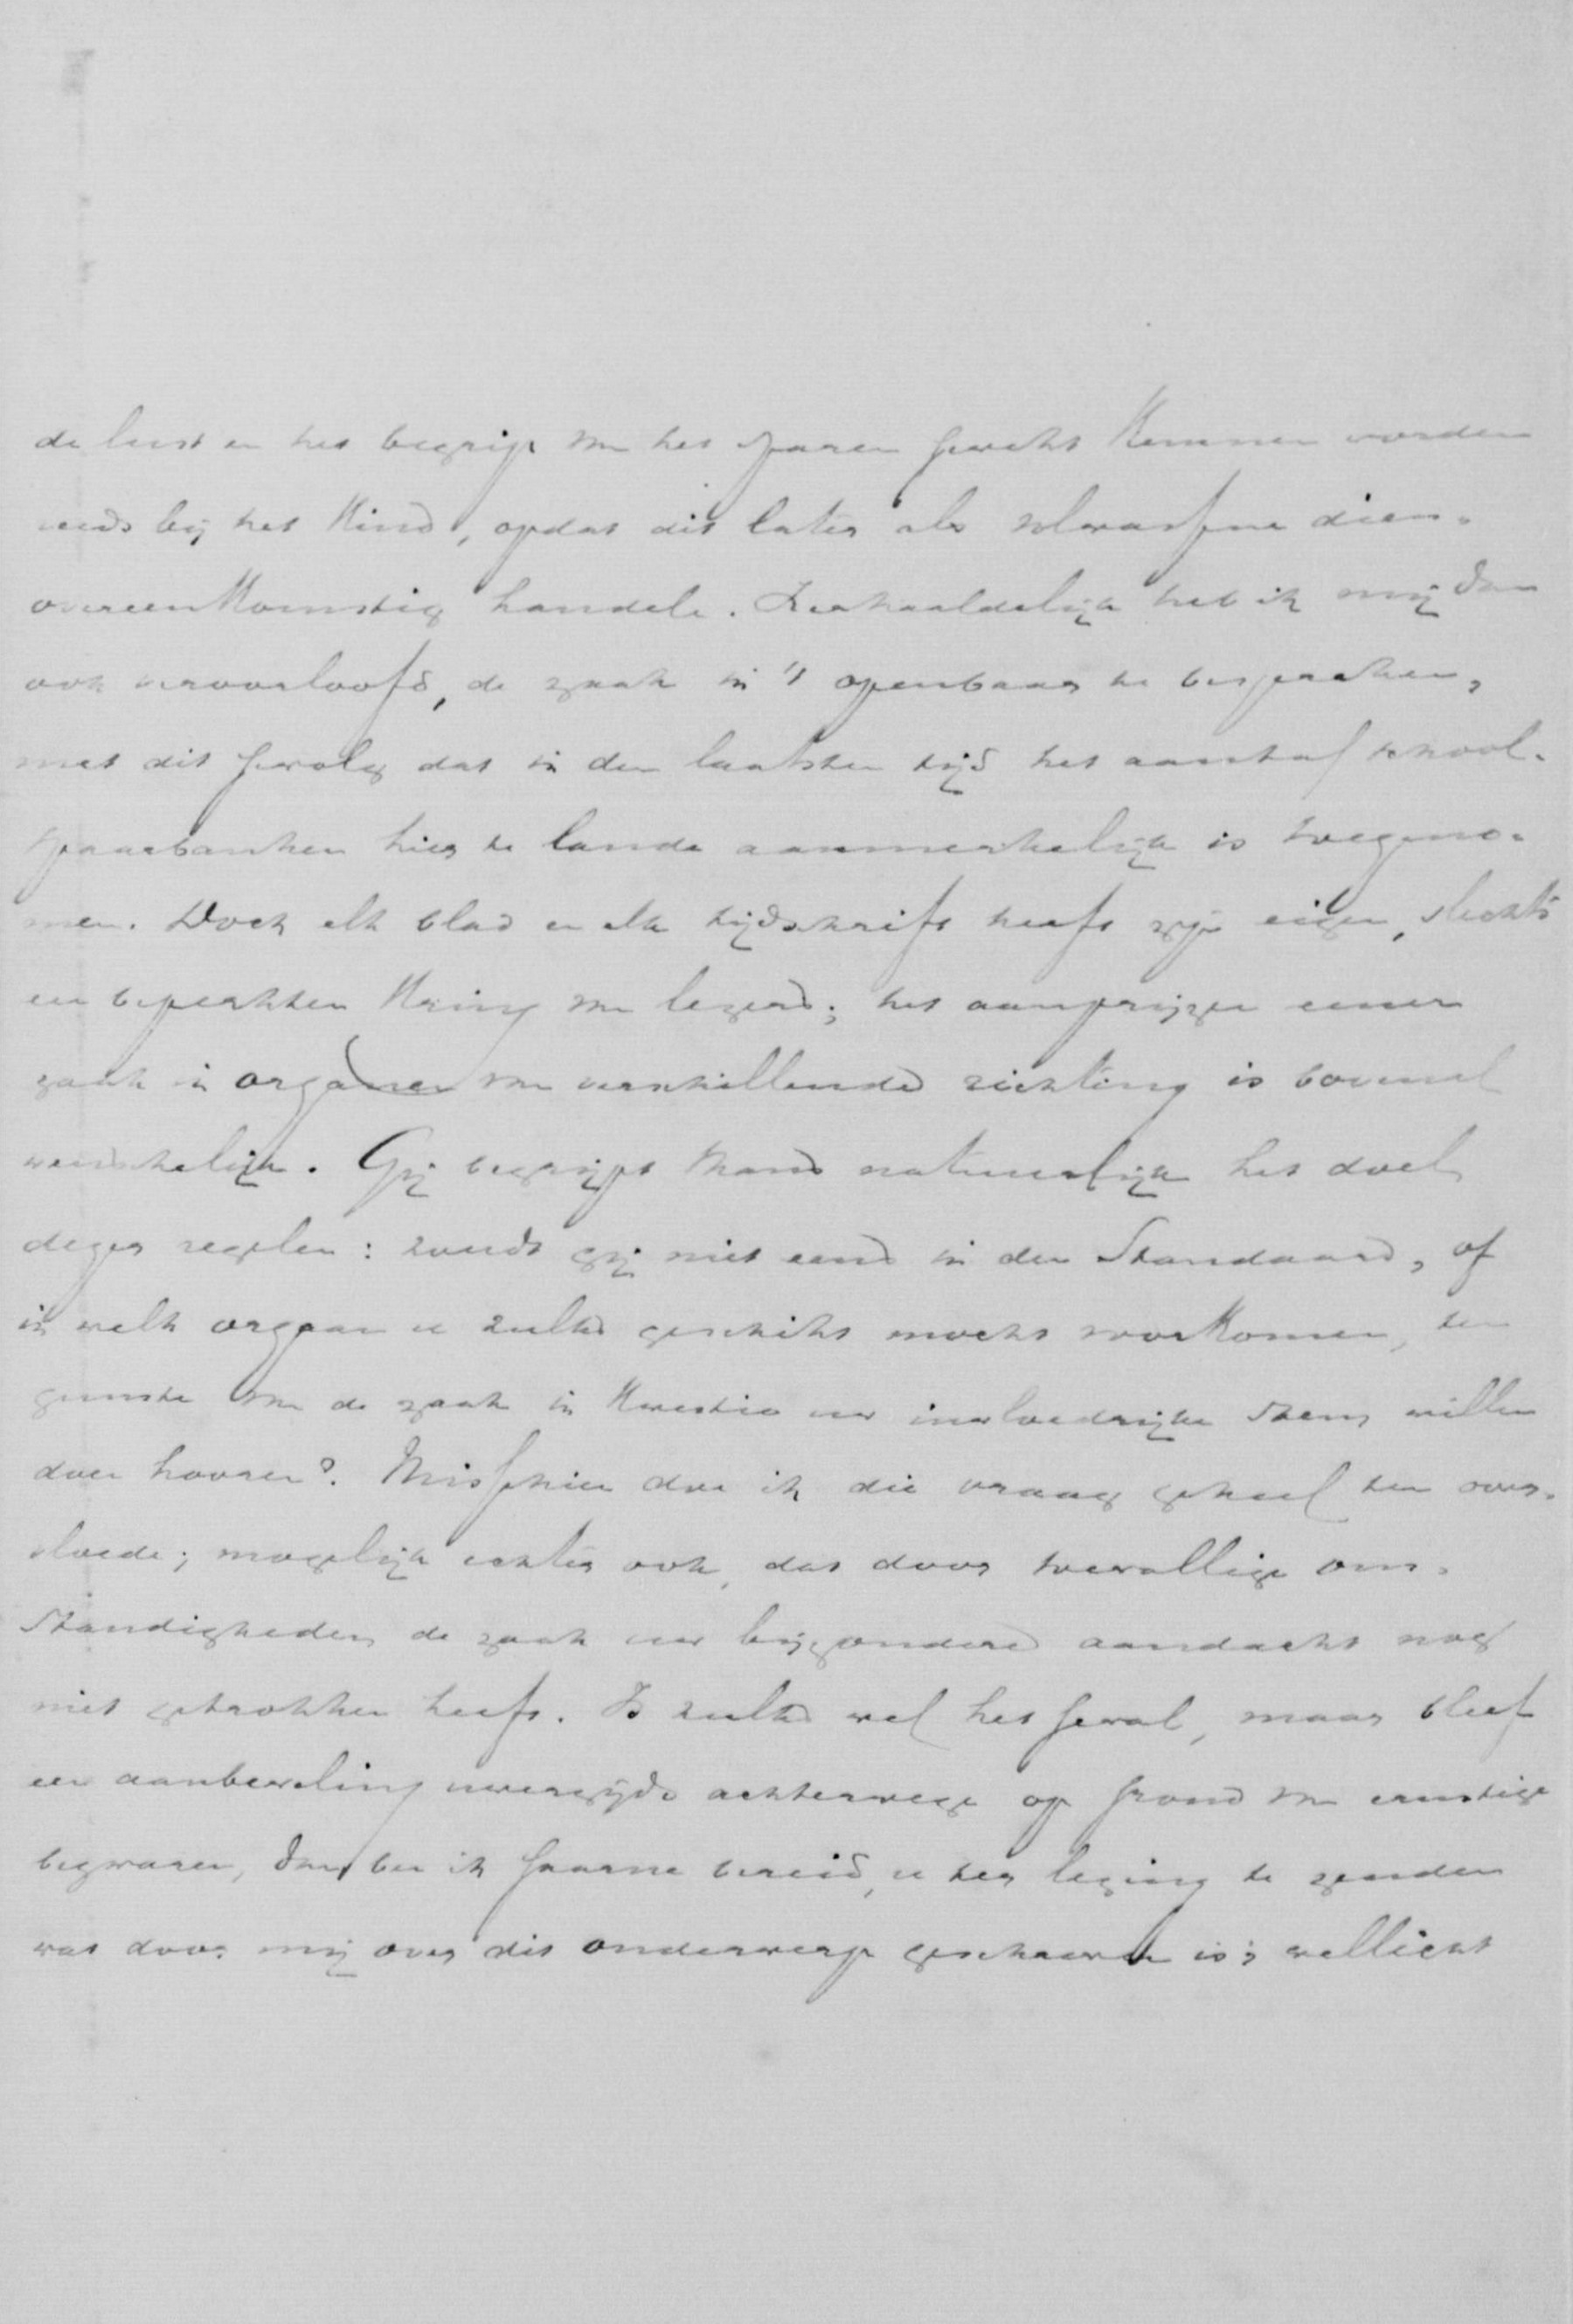 de lust en het begrip van het sparen gewekt kunnen worden
reeds bij het kind, opdat dit later als volwassene dien-
overeenkomstig handele. Herhaaldelijk heb ik mij dan
ook veroorloofd, de zaak in 't openbaar te bespreken,
met dit gevolg dat in den laatsten tijd het aantal school-
spaarbanken hier te lande aanmerkelijk is toegeno-
men. Doch elk blad en elk tijdschrift heeft zijn eigen, slechts
een beperkten kring van lezers; het aanprijzen eener
zaak in organen van verschillende richting is bovenal
wenschelijk. Gij begrijpt thans natuurlijk het doel
dezer regelen: zoudt gij niet eens in den Standaard, of
in welk orgaan u zulks geschikt mocht voorkomen, ten
gunste van de zaak in kwestie uw invloedrijke stem willen
doen hooren? Misschien doe ik die vraag geheel ten over-
vloede; mogelijk echter ook, dat door toevallige om-
standigheden de zaak uw bijzondere aandacht nog
niet getrokken heeft. Is zulks wel het geval, maar bleef
een aanbeveling uwerzijds achterwege op grond van ernstige
bezwaren, dan ben ik gaarne bereid, u ter lezing te zenden
wat door mij over dit onderwerp geschreven is; wellicht